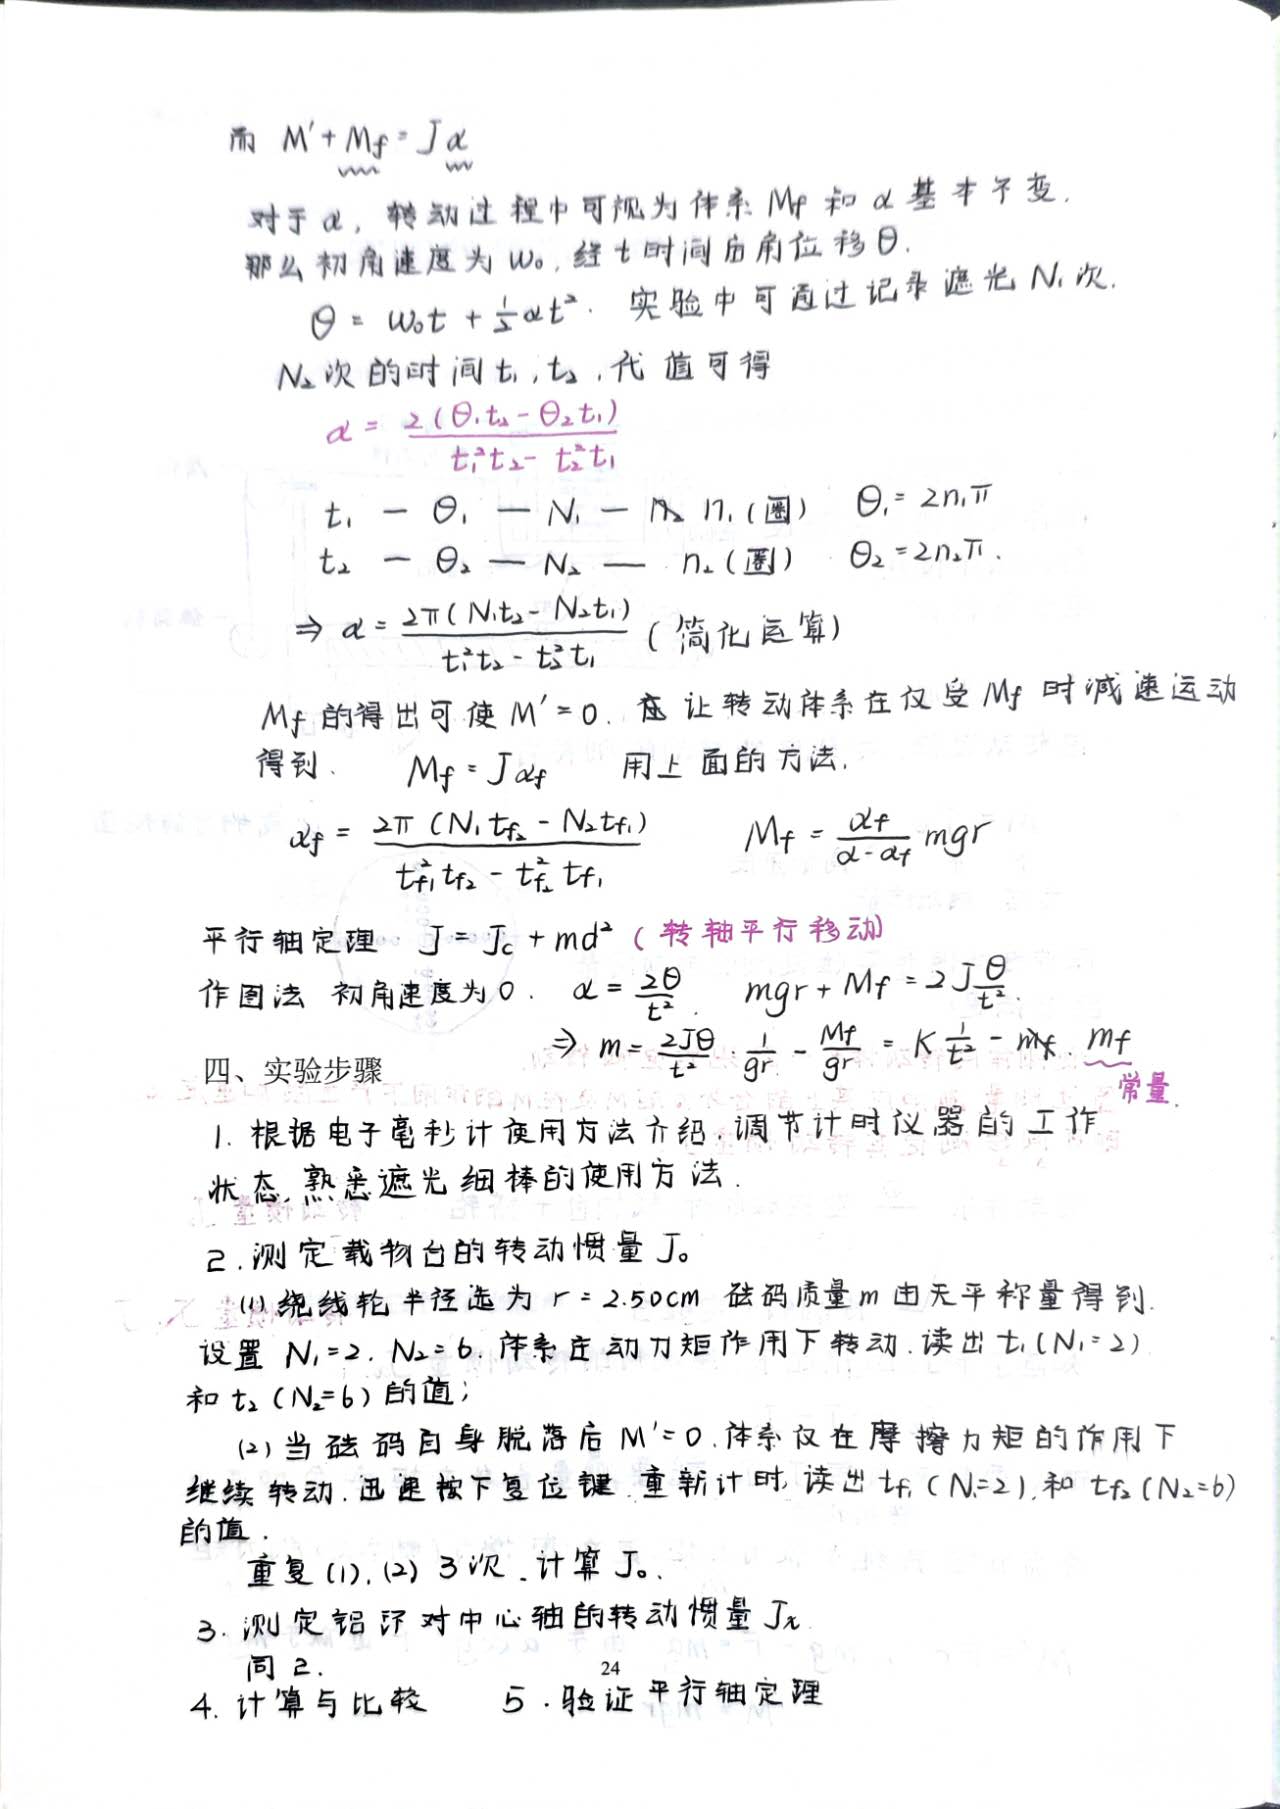 而 M′ + Mf = Jα
对于α, 转动过程中可视为体系Mf和α基本不变.
那么初角速度为ω₀, 经t时间后角位移θ.
θ = ω₀t + ½αt². 实验中可通过记录遮光N₁次.
N₂次的时间t₁, t₂, 代值可得
α = 2(θ₁t₂ - θ₂t₁) / (t₁²t₂ - t₂²t₁)
t₁ — θ₁ — N₁ — n₁(圈) θ₁ = 2n₁π
t₂ — θ₂ — N₂ — n₂(圈) θ₂ = 2n₂π.
⇒ α = 2π(N₁t₂ - N₂t₁) / (t₁²t₂ - t₂²t₁) (简化运算)
Mf的得出可使M′=0. 让转动体系在仅受Mf时减速运动
得到. Mf = Jαf 用上面的方法.
αf = 2π(N₁tf₂ - N₂tf₁) / (tf₁²tf₂ - tf₂²tf₁) Mf = αf/(α-αf) mgr
平行轴定理 J = Jc + md² (转轴平行移动)
作图法 初角速度为0. α = 2θ/t². mgr + Mf = 2Jθ/t².
⇒ m = 2Jθ/t² · 1/gr - Mf/gr = K 1/t² - mf
常量.
四、实验步骤
1. 根据电子毫秒计使用方法介绍, 调节计时仪器的工作
状态, 熟悉遮光细棒的使用方法.
2. 测定载物台的转动惯量J₀
(1) 绕线轮半径选为 r = 2.50cm 砝码质量m由天平称量得到.
设置 N₁=2. N₂=6. 体系在动力矩作用下转动. 读出t₁(N₁=2)
和t₂(N₂=6)的值;
(2) 当砝码自身脱落后M′=0. 体系仅在摩擦力矩的作用下
继续转动. 迅速按下复位键. 重新计时, 读出tf₁(N₁=2). 和tf₂(N₂=6)
的值.
重复(1), (2) 3次. 计算J₀.
3. 测定铝环对中心轴的转动惯量Jx.
同2.
4. 计算与比较 5. 验证平行轴定理
24